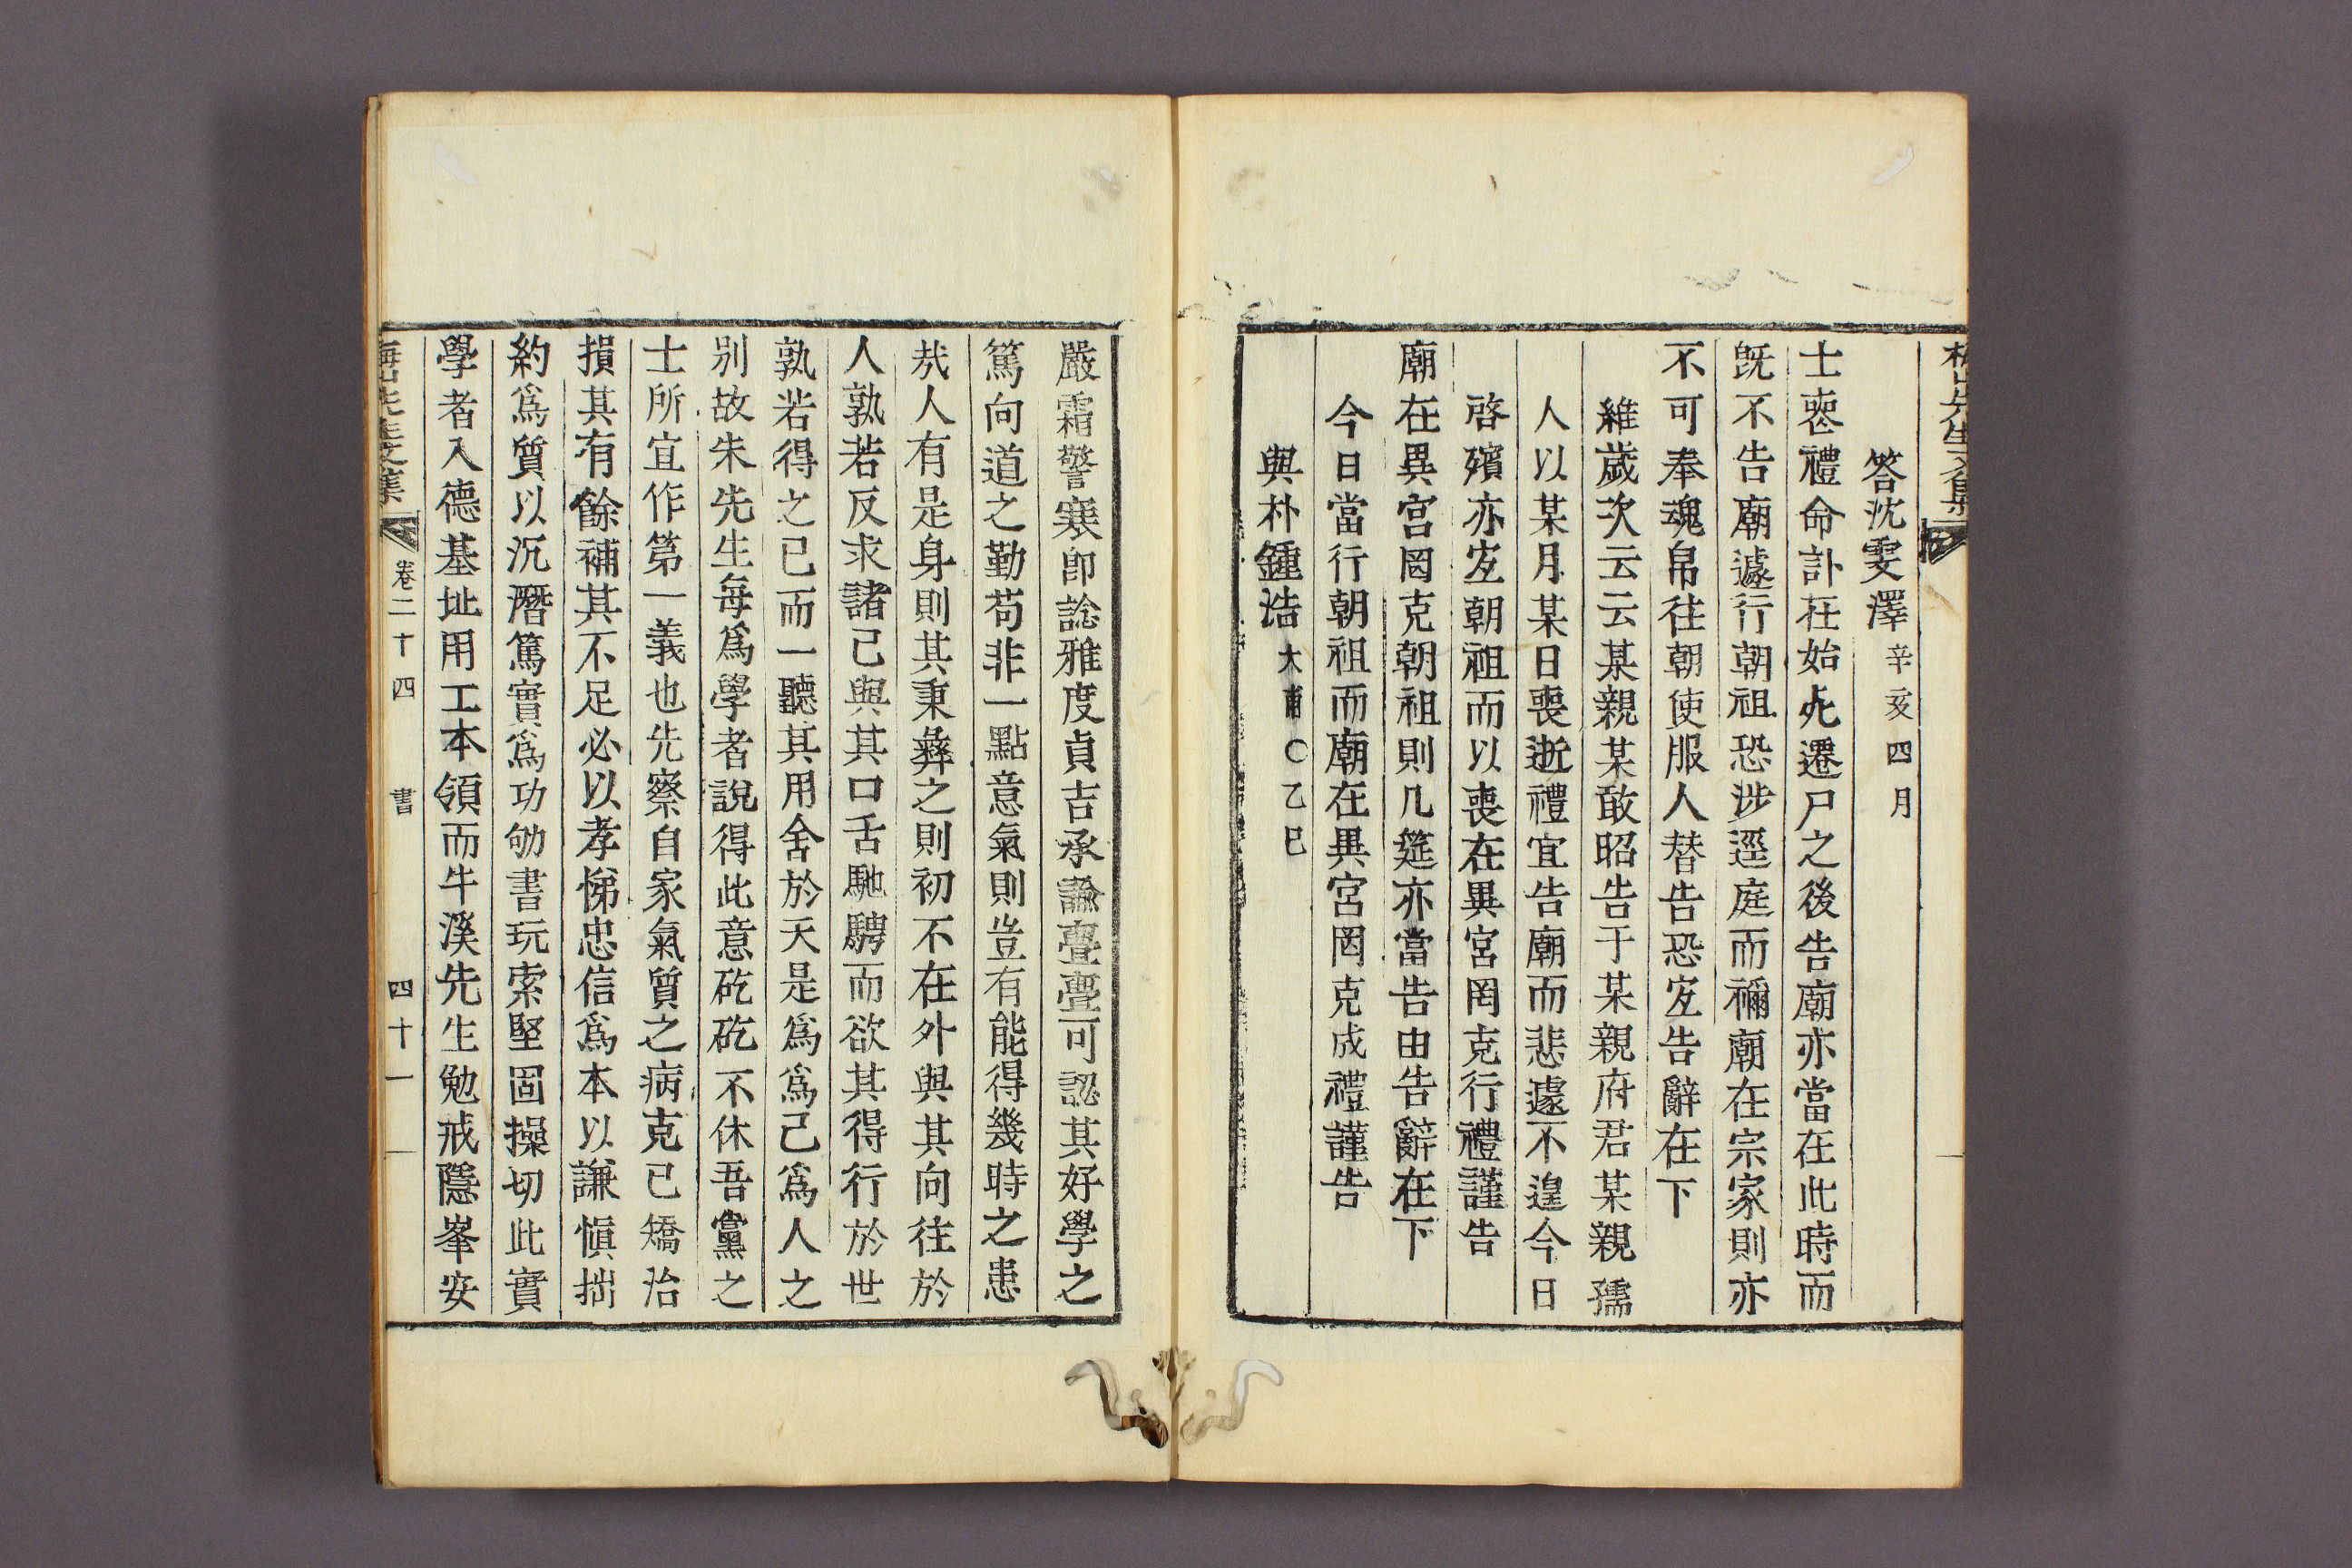 梅山先生文集
答沈雯澤辛亥四月
士喪禮命訃在始死遷尸之後告廟亦當在此時而
旣不告廟遽行朝祖恐涉逕庭而禰廟在宗家則亦
不可奉魂帛往朝使服人替告恐宜告辭在下
維歲次云云某親某敢昭告于某親府君某親孺
人以某月某日喪逝禮宜告廟而悲遽不遑今日
啓殯亦宜朝祖而以喪在異宮罔克行禮謹告
廟在異宮罔克朝祖則几筵亦當告由告辭在下
今日當行朝祖而廟在異宮罔克成禮謹告
與朴鍾浩大甫〇乙巳
嚴霜警寒卽諗雅度貞吉承諭亹亹可認其好學之
篤向道之勤苟非一點意氣則豈有能得幾時之患
㢤人有是身則其秉彝之則初不在外與其向往於
人孰若反求諸己與其口舌馳騁而欲其得行於世
孰若得之已而一聽其用舍於天是爲爲己爲人之
别故朱先生每爲學者說得此意矻矻不休吾黨之
士所宜作第一義也先察自家氣質之病克已矯治
損其有餘補其不足必以孝悌忠信爲本以謙愼拙
約爲質以沉潛篤實爲功劬書玩索堅固操切此實
學者入德基址用工本領而牛溪先生勉戒隱峯安
梅山先生文集 卷二十四 書 四十一